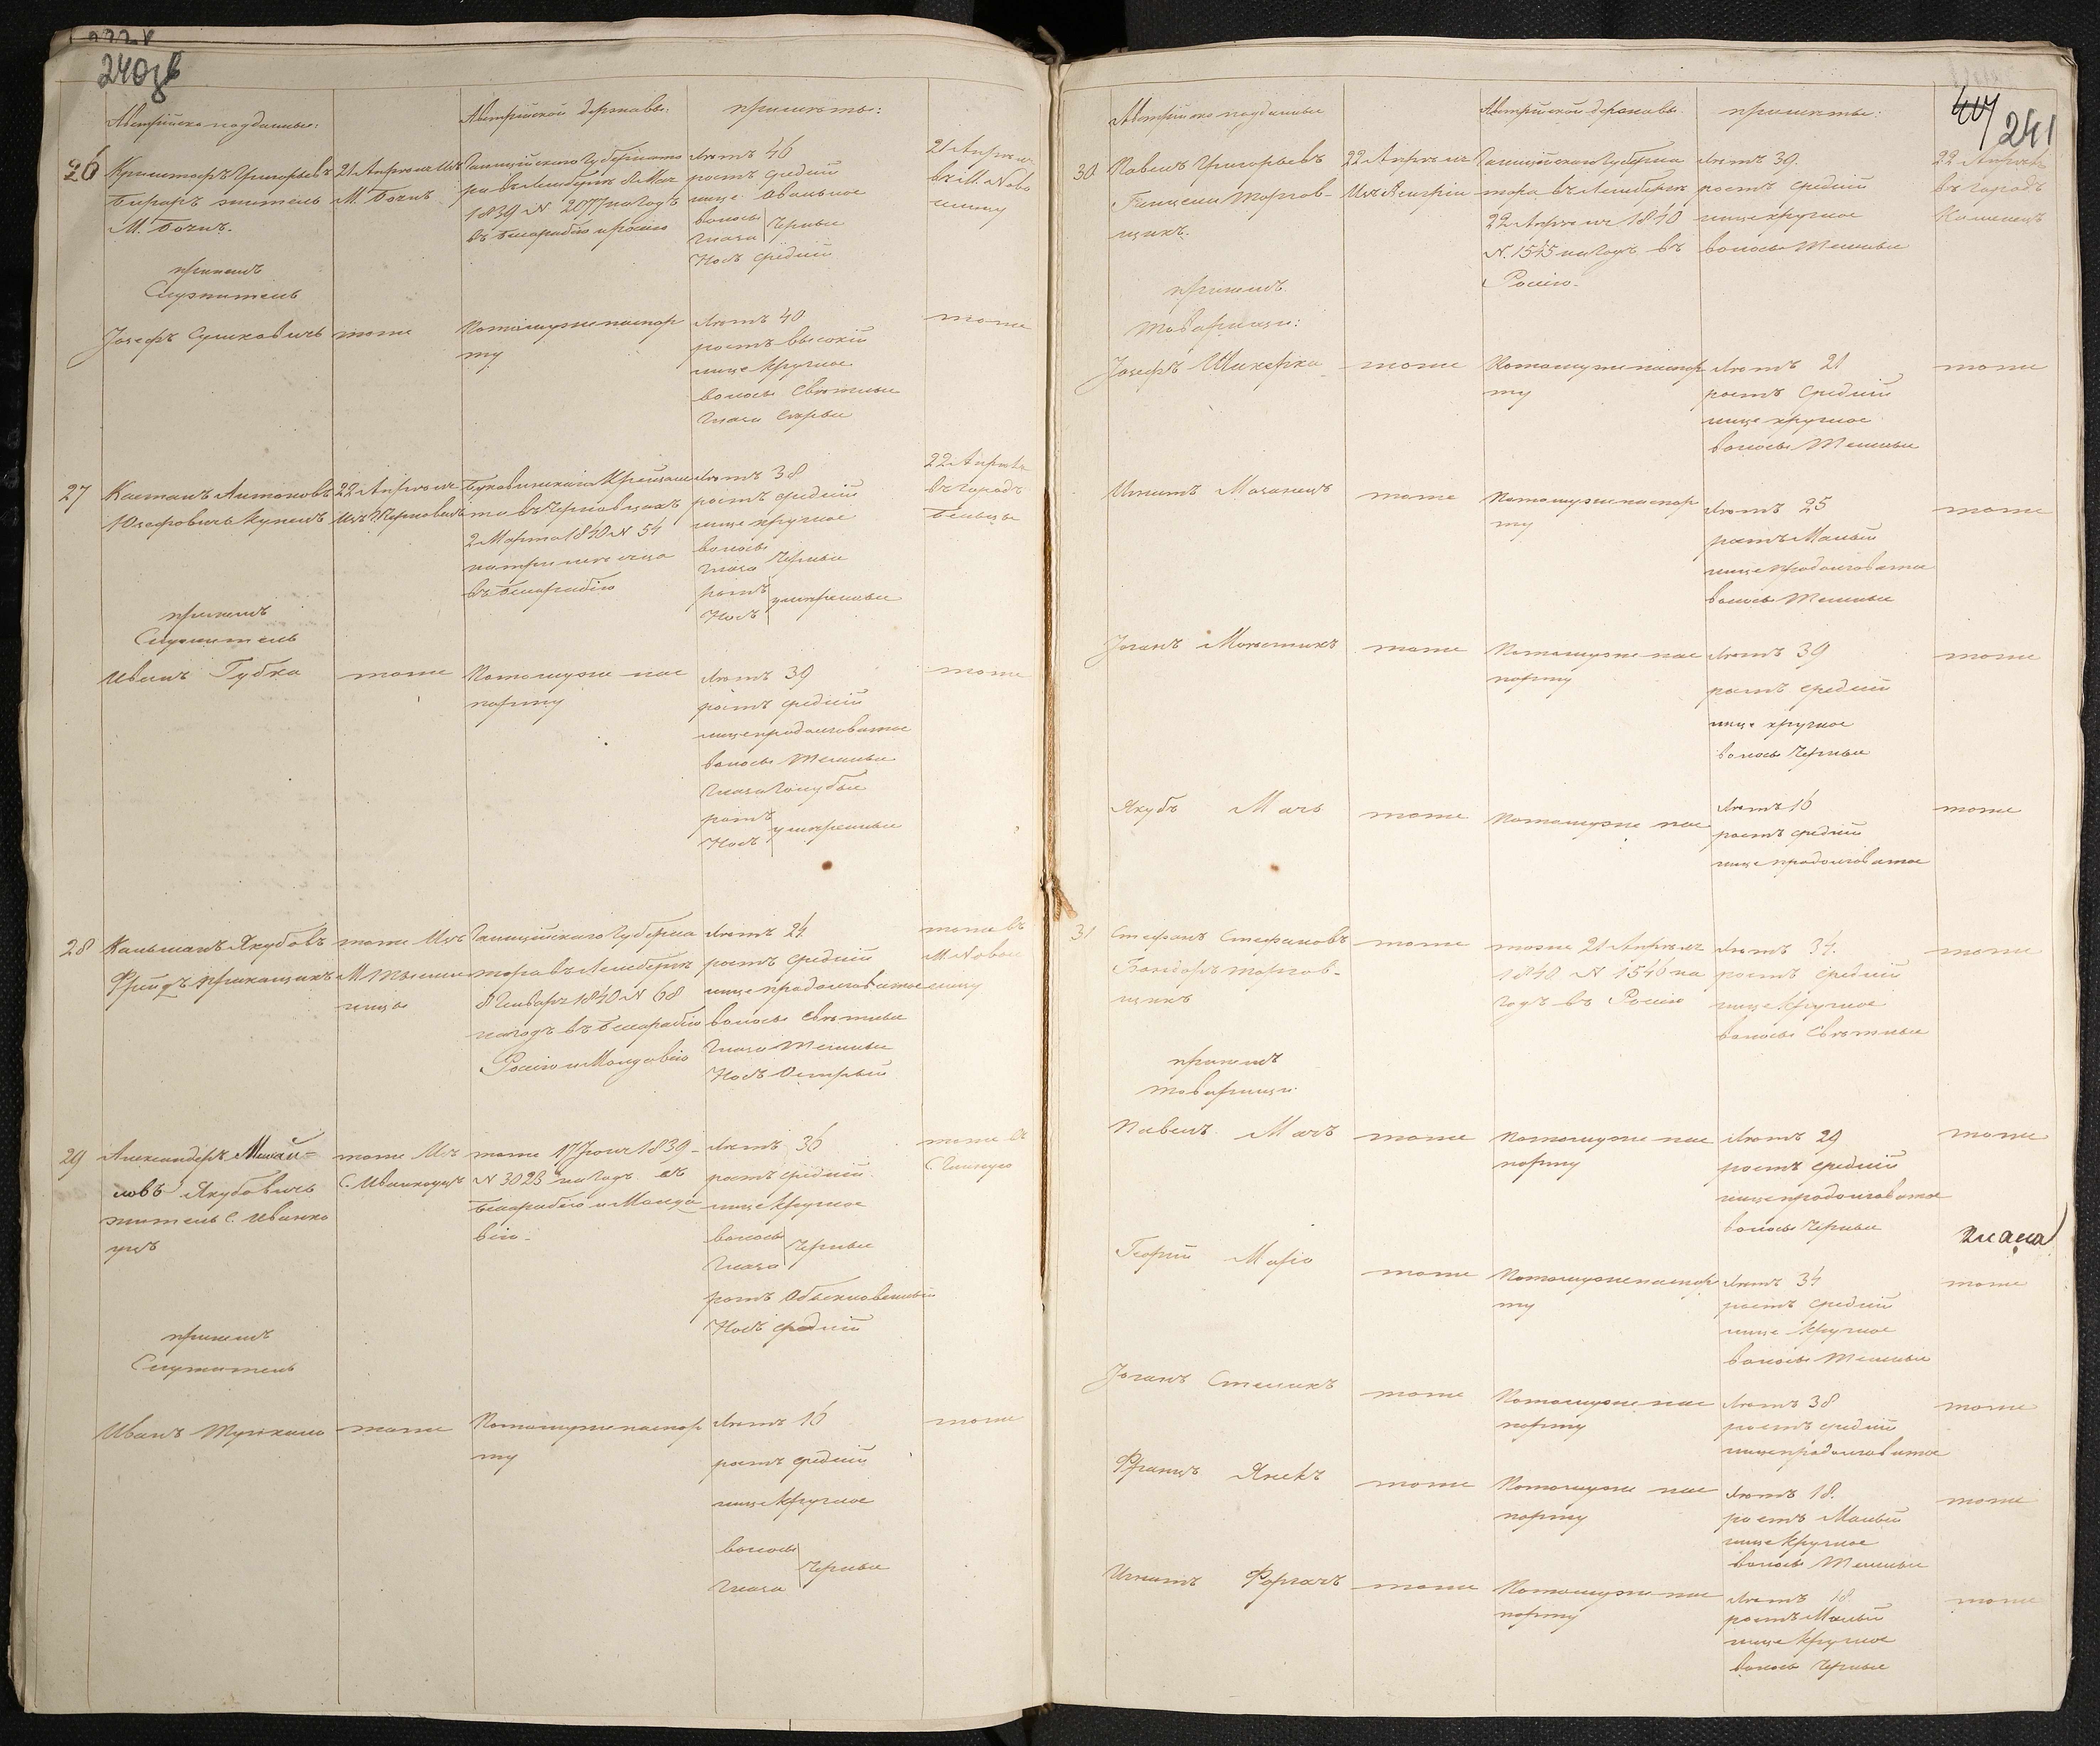 240об
Австрийско подданные:
Австрийской державы:
приметы:
26
Криштофъ Григорьевъ
житель
М. Боянъ.
21 Апреля Изъ
М. Боянъ
Галицийскаго Губернато
ра въ Лемберге 8 Мая
1839 N 2077 на годъ
въ Бесарабию и Россию
Летъ 46
ростъ средний
лице овальное
волосы
глаза Черные
Носъ средний
21 Апреля
въ М. Ново
селицу
при немъ
Служитель
Јозефъ Сулковичъ
тоже
По тому же паспор
ту
Летъ 40
ростъ высокий
лице круглое
волосы Светлые
глаза Серые
тоже
27
Каетанъ Антоновъ
Юзефовичъ купецъ
22 Апреля
Изъ Г. Черновицъ
Буковинскаго Крейзам
та въ Черновцахъ
2 Марта 1840 N 54
на три месяца
въ Бесарабию
Летъ 38
ростъ средний
лице круглое
волосы
глаза Черные
ротъ
Носъ умеренные
22 Апреля
въ городъ
Бельцы
при немъ
Служитель
Иванъ Губка
тоже
По тому же пас
порту
Летъ 39
ростъ средний
лице продолговатое
волосы Темные
глаза Голубые
ротъ
Носъ умеренные
тоже
28
Кальманъ Якубовъ
Фрейдъ прикащикъ
тоже Изъ
М. Тысме
ницы
Галицийскаго Губерна
тора въ Лемберге
8 Генваря 1840 N 68
на годъ въ Бесарабию
Россию и Молдавию
Летъ 24
ростъ средний
лице продолговатое
волосы светлые
глаза Темные
Носъ Острый
тоже въ
М Новосе
лицу
29
Александеръ Михай=
ловъ Якубовичъ
житель С. Иванко
уцъ
тоже Изъ
С. Иванкоуцъ
тоже 17 Јюля 1839
N 3028 на годъ въ
Бесарабию и Молда
вию.
Летъ 36
ростъ средний
лице круглое
волосы
глаза Черные
ротъ Обыкновенный
Носъ средний
тоже въ
С. Глиную
при немъ
Служитель
Иванъ
тоже
По тому же паспор
ту
Летъ 16
ростъ средний
лице круглое
волосы
глаза Черные
тоже
407
241
Австрийско подданные
Австрийской державы
приметы:
30
Павелъ Григорьевъ
Торгов-
щикъ.
22 Апреля
Изъ Венгрии
Галицийскаго Губерна
тора въ Лемберге
22 Апреля 1840
N. 1545 на годъ въ
Россию.
Летъ 39.
ростъ средний
лице круглое
волосы Темные
22 Апреля
въ городъ
Каменецъ
при немъ
товарищи:
Јозефъ Шикерка
тоже
По тому же паспор
ту
Летъ 21
ростъ Средний
лице круглое
волосы Темные
тоже
Игнатъ Мазанецъ
тоже
По тому же паспор
ту
Летъ 25
ростъ Малый
лице продолговатое
волосы Темные
тоже
Јоганъ
тоже
По тому же пас
порту
Летъ 39
ростъ средний
лице круглое
волосы Черные
тоже
Якубъ Мачъ
тоже
По тому же пас
Летъ 16
ростъ средний
лице продолговатое
тоже
31
Стефанъ Стефановъ
торгов-
щикъ
тоже
тоже 21 Апреля
1840 N 1546 на
годъ въ Россию
Летъ 34.
ростъ средний
лице круглое
волосы Светлые
тоже
при немъ
товарищи:
Павелъ Мачъ
тоже
По тому же пас
порту
Летъ 29
ростъ средний
лице продолговатое
волосы Черные
тоже
Георгий
тоже
По тому же паспор
ту
Летъ 34
ростъ средний
лице круглое
волосы Темные
тоже
Јоганъ Стеликъ
тоже
По тому же пас
порту
Летъ 38
ростъ средний
лице продолговатое
тоже
Францъ Янекъ
тоже
По тому же пас
порту
Летъ 18.
ростъ Малый
лице круглое
волосы Темные
тоже
Игнатъ
тоже
По тому же пас
порту
Летъ 18
ростъ Малый
лице круглое
волосы Черные
тоже